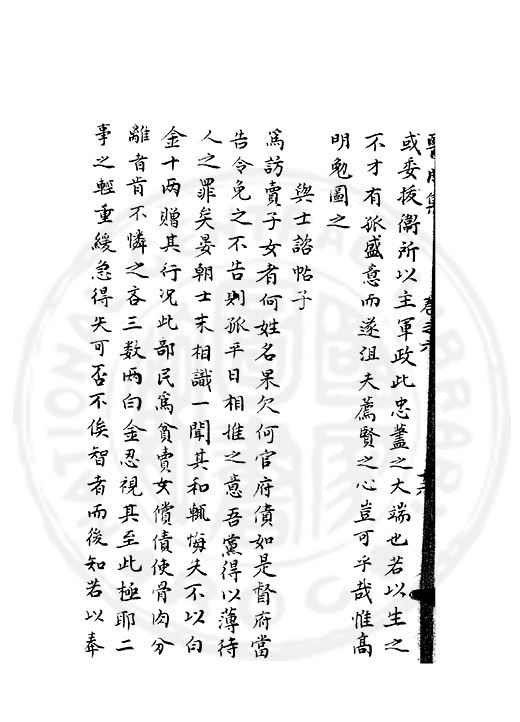 或委援衞所以主軍政此忠藎之大端也若以生之
不才有孤盛意而遂沮夫薦賢之心豈可乎哉惟高
明勉圖之
與士諮帖子
為訪賣子女者何姓名果欠何官府債如是督府當
告令免之不告則孤平日相推之意吾黨得以薄待
人之罪矣晏朝士未相識一聞其和輒悔失不以白
金十两贈其行况此部民為貧賣女償債使骨肉分
離者肯不憐之吝三数两白金忍視其至此極耶二
事之輕重緩急得失可否不俟智者而後知若以奉